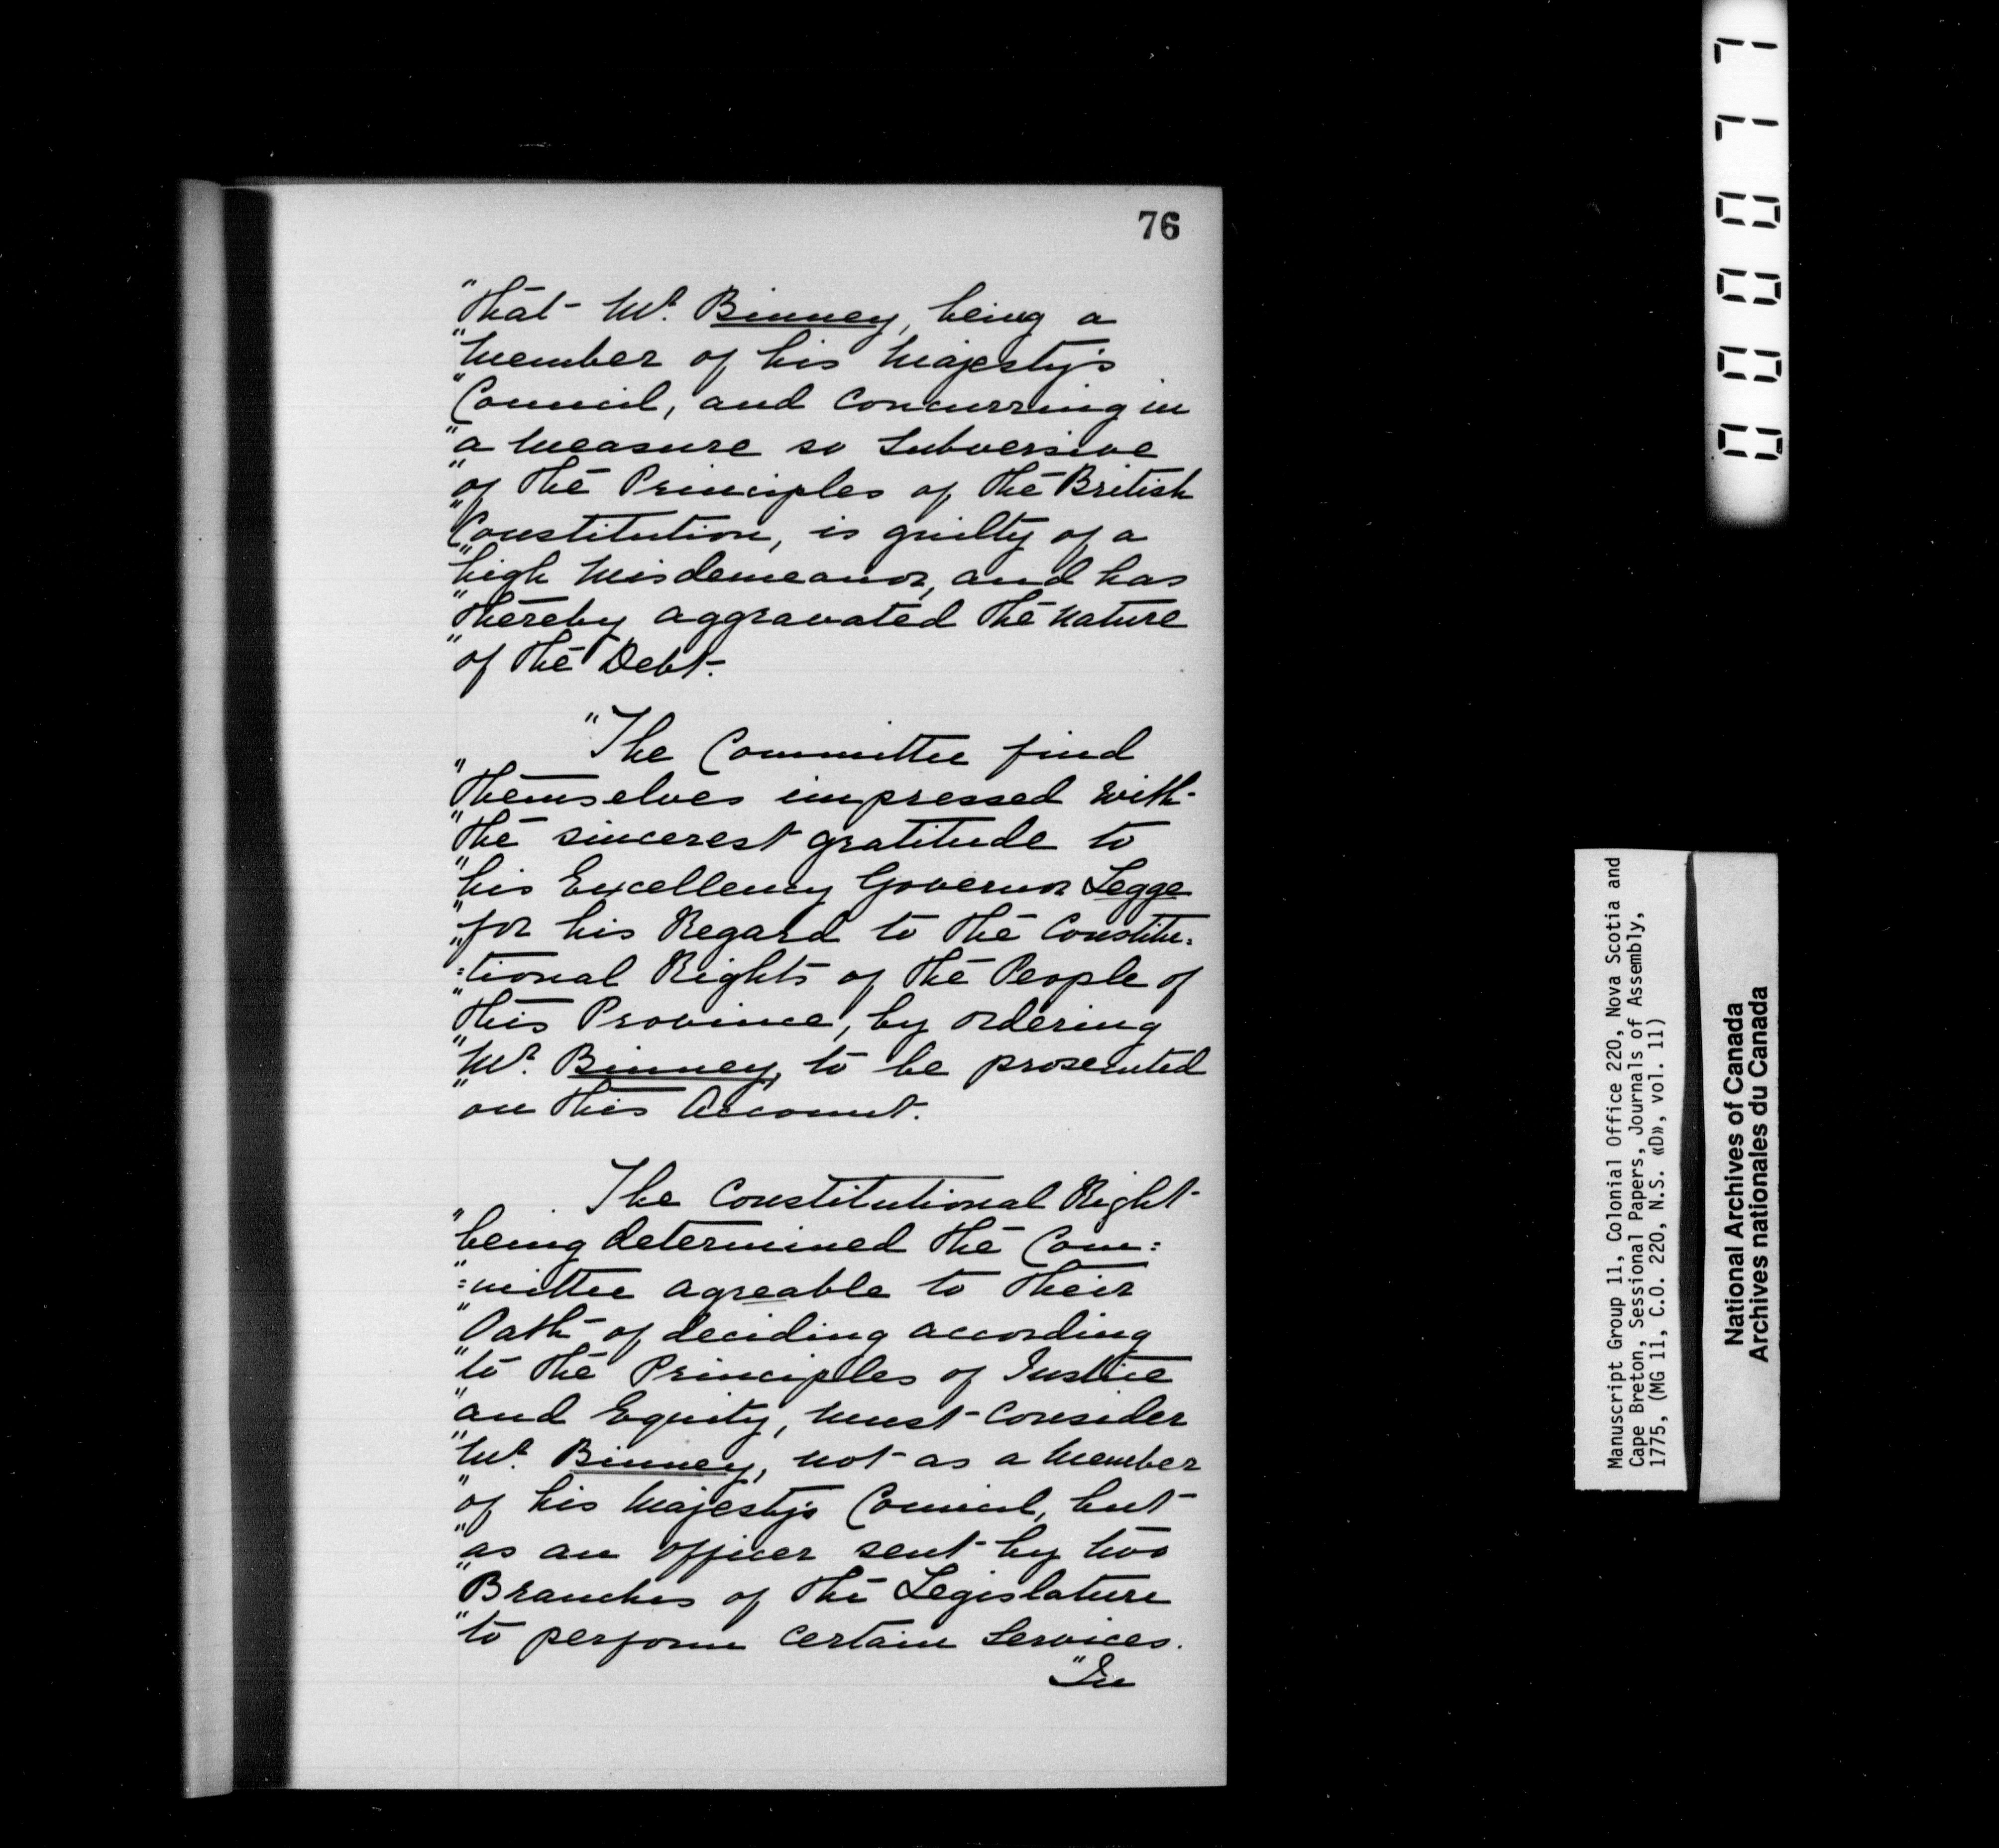 76
"that Mr. Binney, being a
"Member of his Majesty's
"Council, and concurring in
"a Measure so Subversive
"of the Principles of the British
"Constitution, is guilty of a
"high Misdemeanor, and has
"thereby aggravated the Nature
"of the Debt.
"The Committee find
"themselves impressed with
"the sincerest gratitude to
"his Excellency Governor Legge
"for his Regard to the Constitu=
"=tional Rights of the People of
"this Province, by ordering
"Mr. Binney, to be prosecuted
"on this Account.
The Constitutional Right
"being determined the Com=
"=mittee agreable to their
"Oath of deciding according
"to the Principles of Justice
"and Equity, must consider
"Mr. Binney, not as a Member
"of his Majesty's Council, but
"as an officer sent by two
"Branches of the Legislature
"to perform certain Services.
"In
000077
Manuscript Group 11, Colonial Office 220, Nova Scotia and
Cape Breton, Sessional Papers, Journals of Assembly,
1775, (MG 11, C.O. 220, N.S. «D», vol. 11)
National Archives of Canada
Archives nationales du Canada